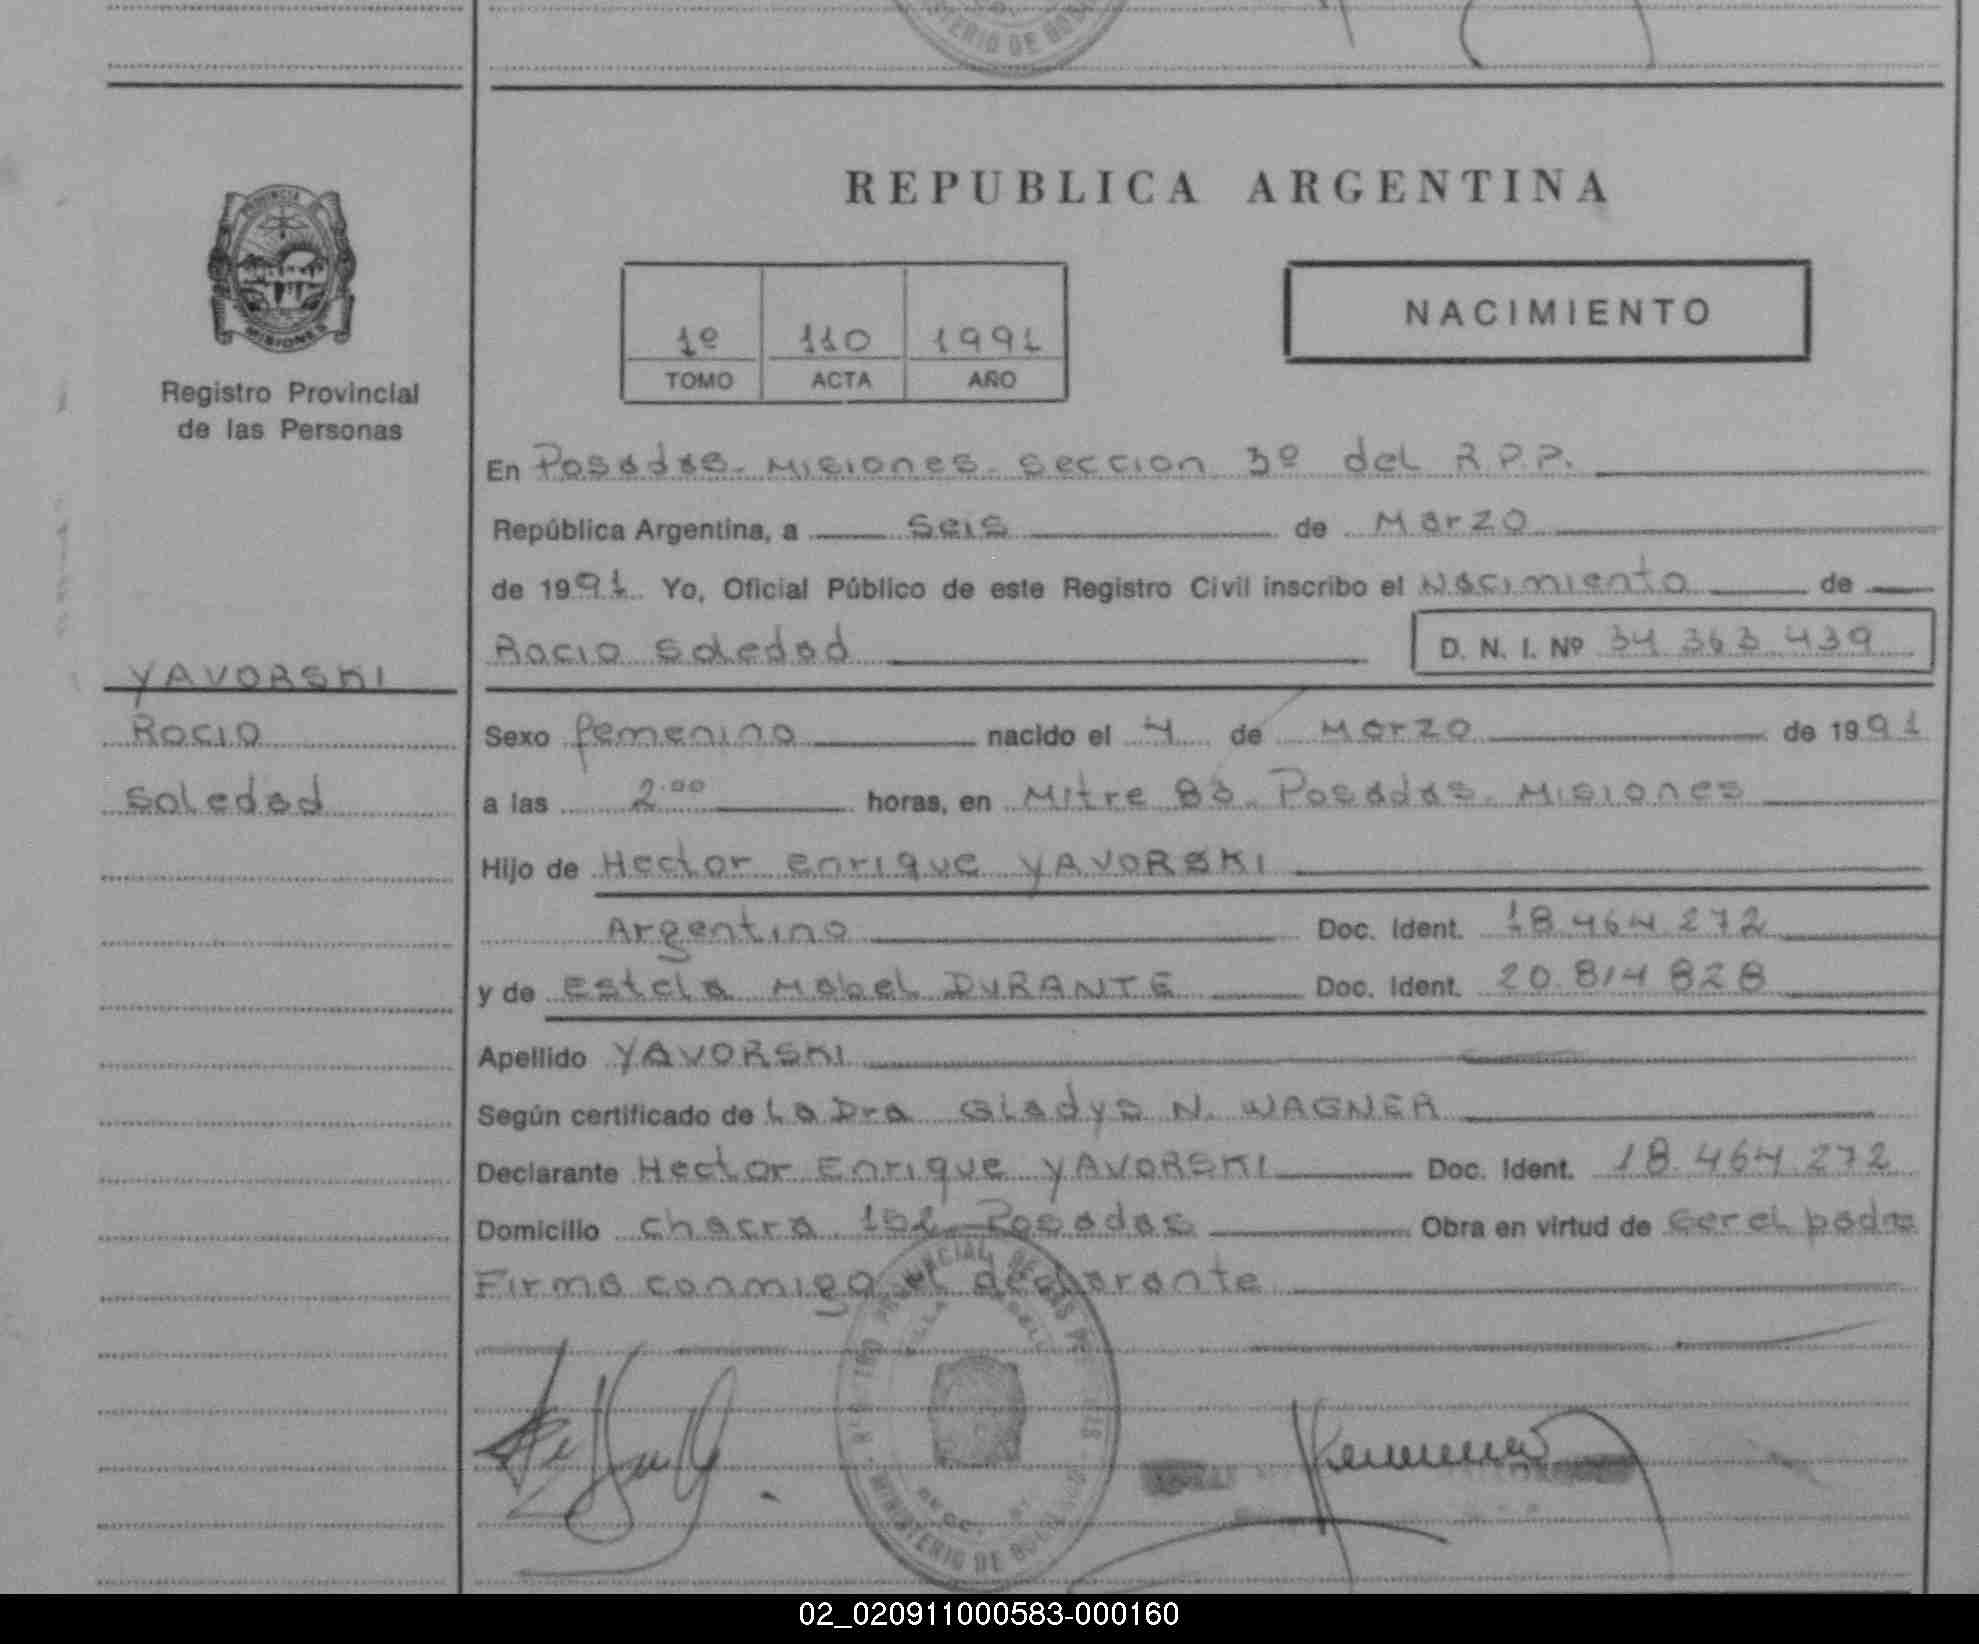 MINISTERIO DE GOB
REPUBLICA ARGENTINA
PROVINCIA
MISIONES
1º 110 1991
TOMO ACTA AÑO
NACIMIENTO
Registro Provincial
de las Personas
En Posadas. Misiones. Seccion 3º del R.P.P.
República Argentina, a seis de Marzo
de 1991. Yo, Oficial Público de este Registro Civil inscribo el Nacimiento de
Rocio Soledad D. N. I. Nº 34 363 439
YAVORSKI
Rocio
Soledad
Sexo femenino nacido el 4 de Marzo de 1991
a las 2.00 horas, en Mitre 83. Posadas. Misiones
Hijo de Hector Enrique YAVORSKI
Argentino Doc. Ident. 18.464.272
y de Estela Mabel DURANTE Doc. Ident. 20.814 828
Apellido YAVORSKI
Según certificado de La Dra Gladys N. WAGNER
Declarante Hector Enrique YAVORSKI Doc. Ident. 18.464.272
Domicilio chacra 152 Posadas Obra en virtud de ser el padre
Firma conmigo el declarante
PROVINCIAL DE LAS
MINISTERIO DE
02_020911000583-000160